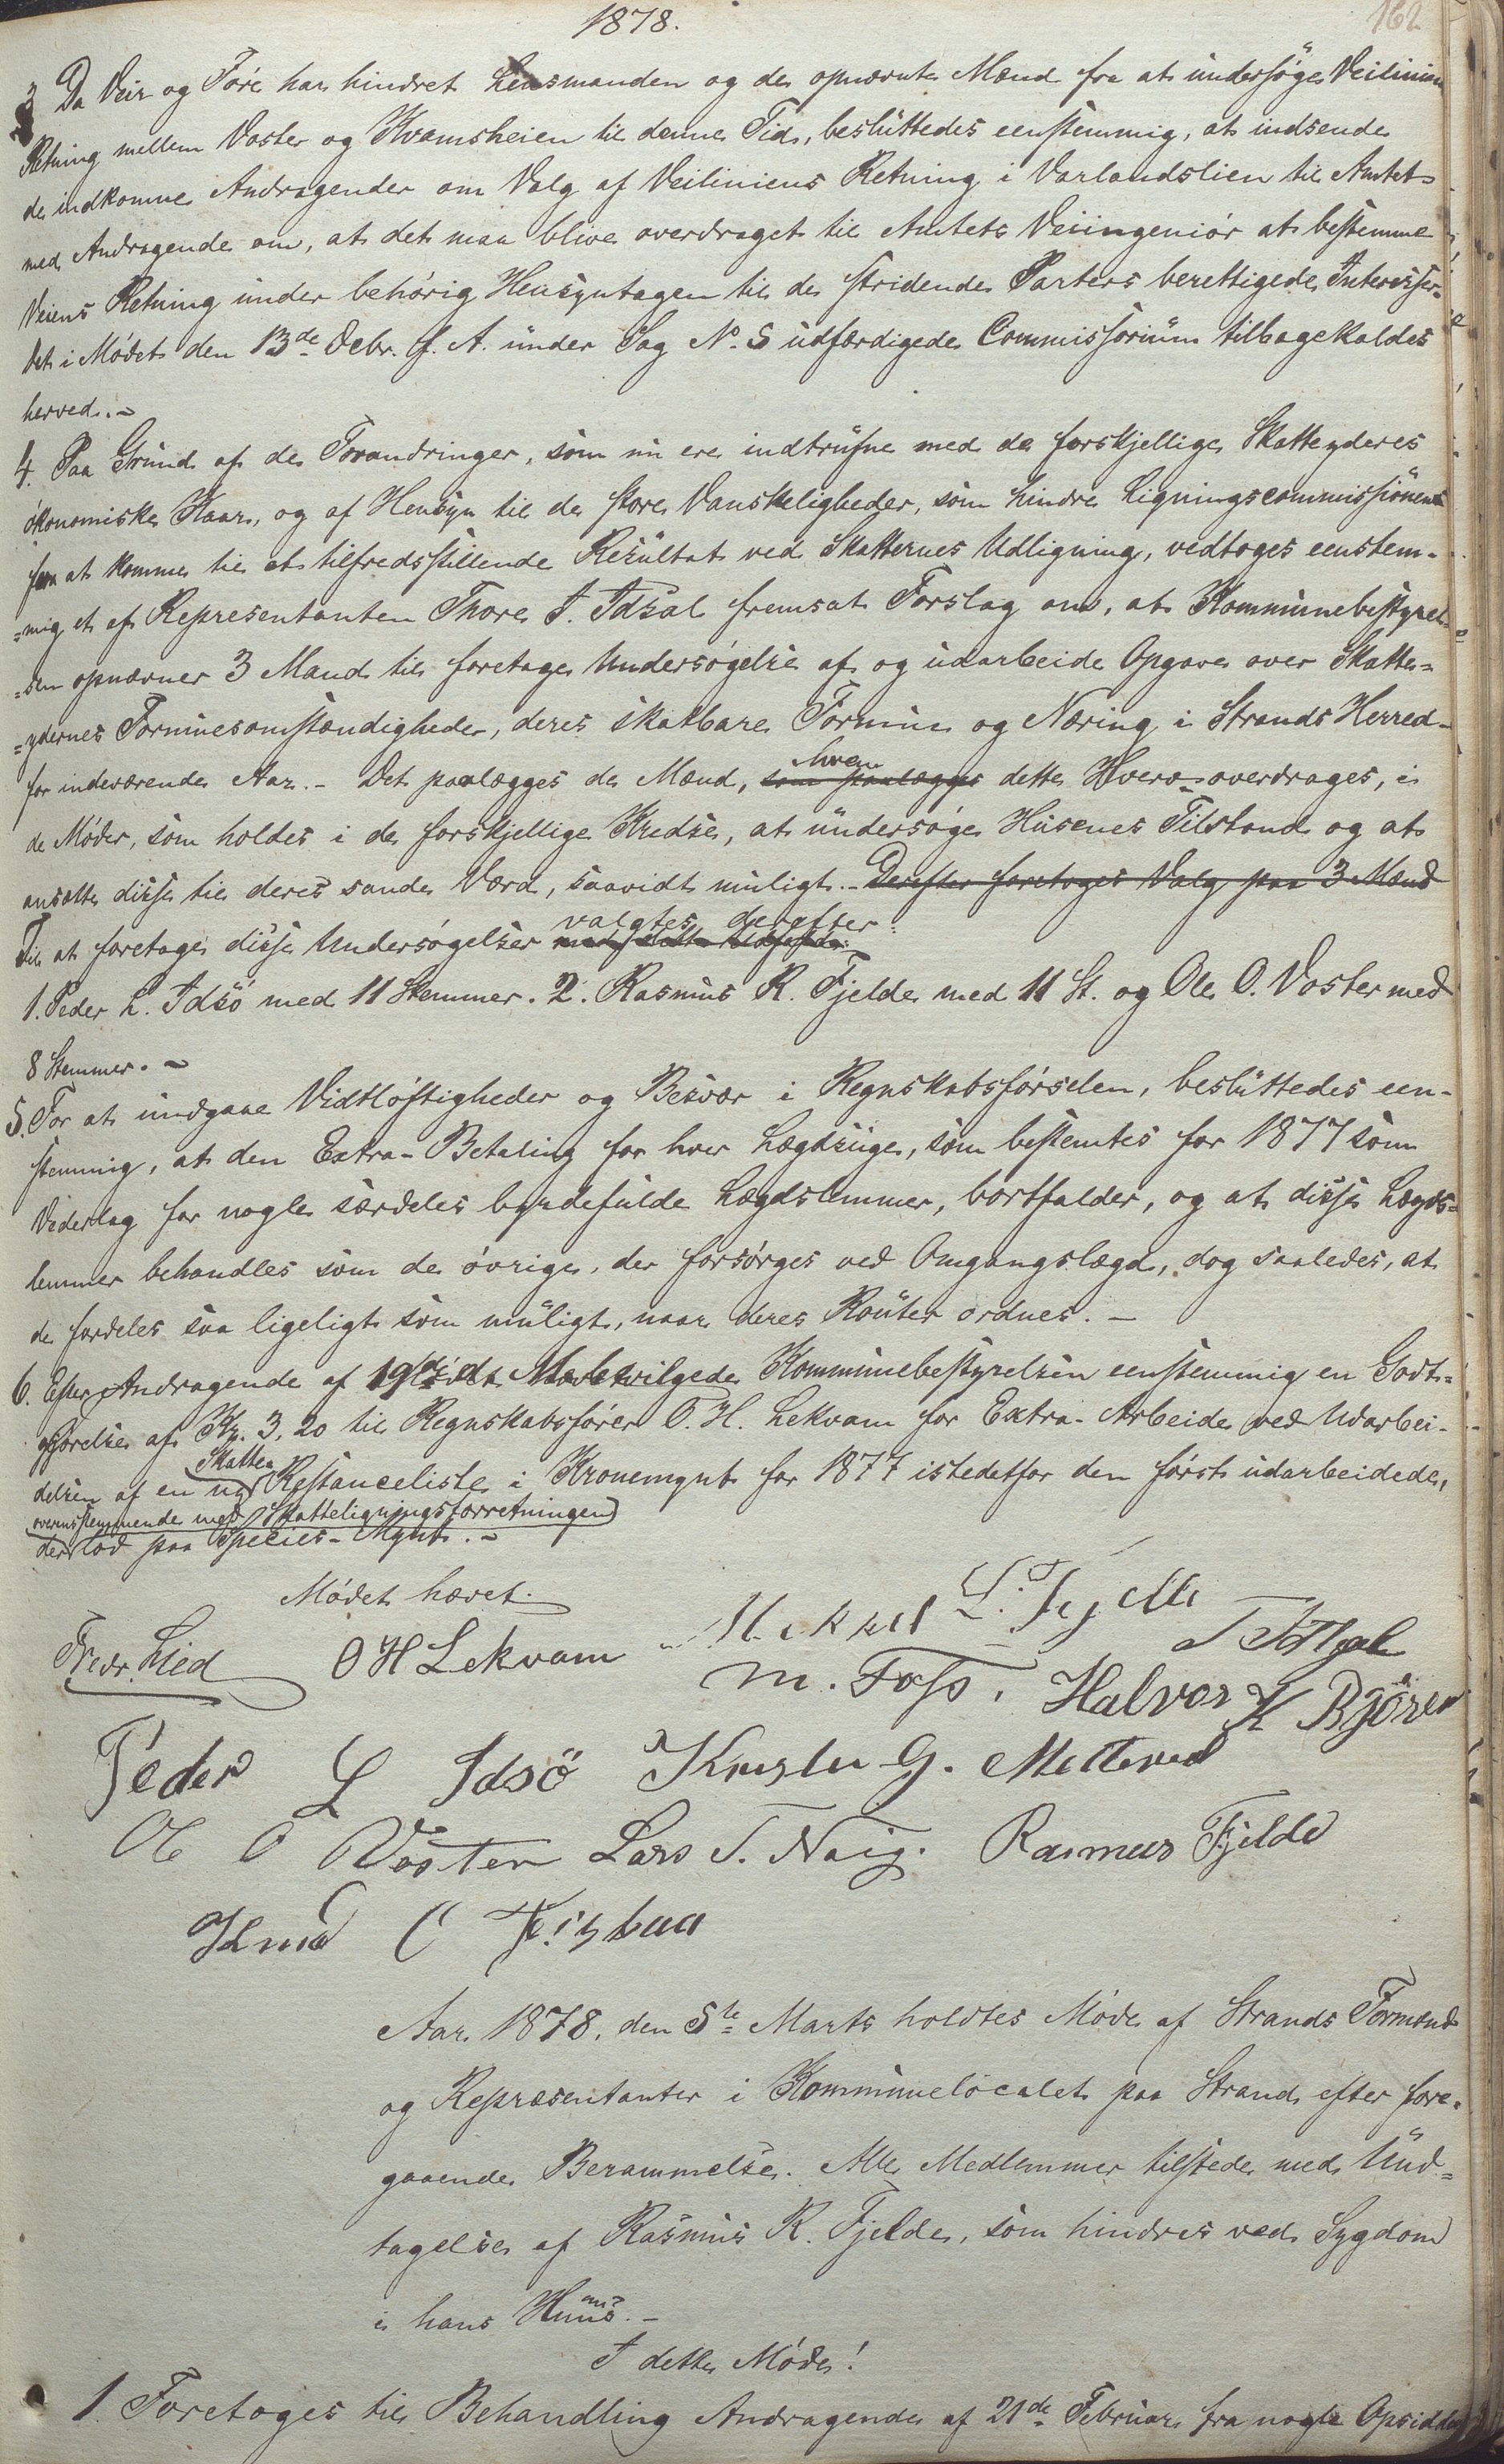 1878.
162
3 Da Veir og Føre har hindret Lensmanden og de opnævnte Mænd fra at undersøge Veiliniens
Retning mellem Voster og Kvamsheien til denne Tid, besluttedes eenstemmig, at indsende
de indkomne Andragender om Valg af Veiliniens Retning i Varlandslien til Amtet
med Andragende om, at det maa blive overdraget til Amtets Veiingeniør at bestemme
Veiens Retning under behørig Hensyntagen til de stridende Parters berettigede Interesser.
Det i Mødet den 13de Debr. f. A. under Sag No. 5 udfærdigede Commissorium tilbagekaldes
herved. -
4. Paa Grund af de Forandringer, som nu ere indtrufne med de forskjellige Skatteyderes
økonomiske Kaar, og af Hensyn til de store Vanskeligheder, som hindre Ligningscommissionen
fra at komme til et tilfredsstillende Resultat ved Skatternes Udligning, vedtoges eenstem-
=mig et af Representanten Thore T. Idsal fremsat Forslag om, at Kommunebestyrel-
=sen opnævner 3 Mænd til foretage Undersøgelse af og udarbeide Opgave over Skatte=
=ydernes Formuesomstændigheder, deres skatbare Formue og Næring i Strands Herred
for indeværende Aar. - Det paalægges de Mænd, som paalægges hvem dette Hverv overdrages, i
de Møder, som holdes i de forskjellige Kredse, at undersøge Husenes Tilstand og at
ansætte disse til deres sande Værd, saavidt muligt. - Derefter foretoges Valg paa 3 Mænd
Til at foretage disse Undersøgelser valgtes derefter:
1. Peder L. Idsö med 11 Stemmer. 2. Rasmus R. Fjelde med 11 St. og Ole O. Voster med
8 Stemmer. -
5. For at undgaae Vidtløftigheder og Besvær i Regnskabsførselen, besluttedes een-
stemmig, at den Extra-Betaling for hver Lægdsuge, som bestemtes for 1877 som
Vederlag for nogle særdeles byrdefulde Lægdslemmer, bortfalder, og at disse Lægds=
lemmer behandles som de øvrige, der forsørges ved Omgangslægd, dog saaledes, at
de fordeles saa ligeligt som muligt, naar deres Router ordnes. -
6. Efter Andragende af 19de bevilgede Kommunebestyrelsen eenstemmig en Godt=
gjørelse af Kr. 3,20 til Regnskabsfører O. H. Lekvam for Extra-Arbeide ved Udarbei-
delsen af en ny Skatte Restanceliste i Kronemynt for 1877 istedetfor den først udarbeidede,
overensstemmende med Skatteligningsforretningen
der lød paa Species-Mynt. -
Mødet hævet.
Fredr. Lied O H Lekvam Mikkel L. Fjelde T T Idsal
M. Foss. Halvor K Bjøren
Peder L Idsö Krister G. Melteved
Ole O Voster Lars T. Naig. Rasmus Fjelde
Knud C
Aar 1878, den 5te Marts holdtes Møde af Strands Formænd
og Repræsentanter i Kommunelocalet paa Strand efter fore-
gaaende Berammelse. Alle Medlemmer tilstede med Und=
tagelse af Rasmus R. Fjelde, som hindres ved Sygdom
i hans Huus. -
I dette Møde!
1 Foretoges til Behandling Andragende af 21de Februar fra nogle Opsiddere